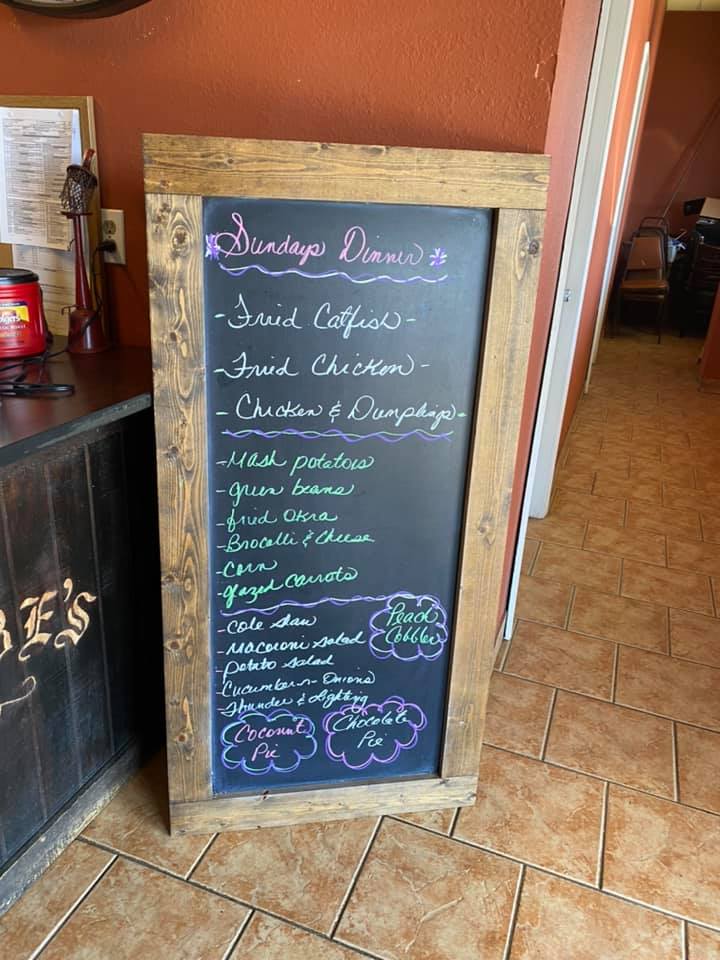 Sundays Dinner
-Fried Catfish-
-Fried Chicken-
-Chicken & Dumplings-
-Mash potatoes
-green beans
-fried Okra
-Brocolli & Cheese
-Corn
-glazed carrots
-Cole slaw
-Macaroni salad
-potato salad
-Cucumber n Onions
-Thunder & Lighting
Peach
Cobbler
Coconut
Pie
Chocolate
Pie
BE'S